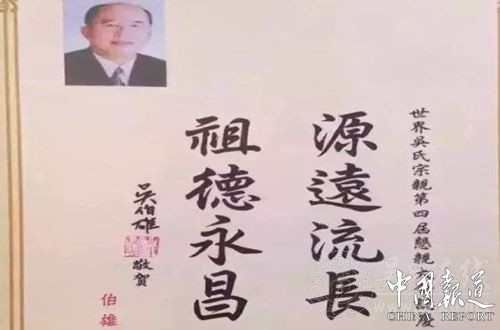 世界吳氏宗親第四屆懇親
源遠流長
祖德永昌
吳伯雄
敬賀
伯雄
中國報道